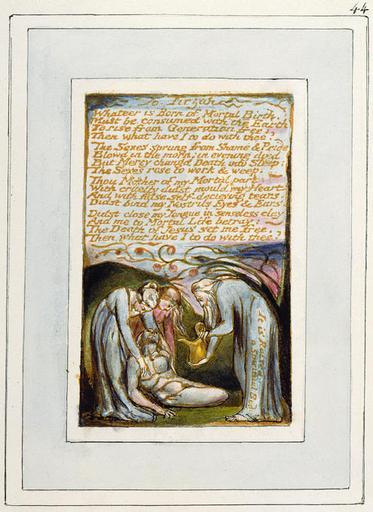 44
To Tirzah
Whate'er is Born of Mortal Birth,
Must be consumed with the Earth
To rise from Generation free:
Then what have I to do with thee?
The Sexes sprung from Shame & Pride
Blow'd in the morn: in evening died
But Mercy changd Death into Sleep;
The Sexes rose to work & weep.
Thou Mother of my Mortal part,
With cruelty didst mould my Heart,
And with false self-decieving tears,
Didst bind my Nostrils Eyes & Ears.
Didst close my Tongue in senseless clay
And me to Mortal Life betray:
The Death of Jesus set me free,
Then what have I to do with thee?
It is Raised
a Spiritual Body